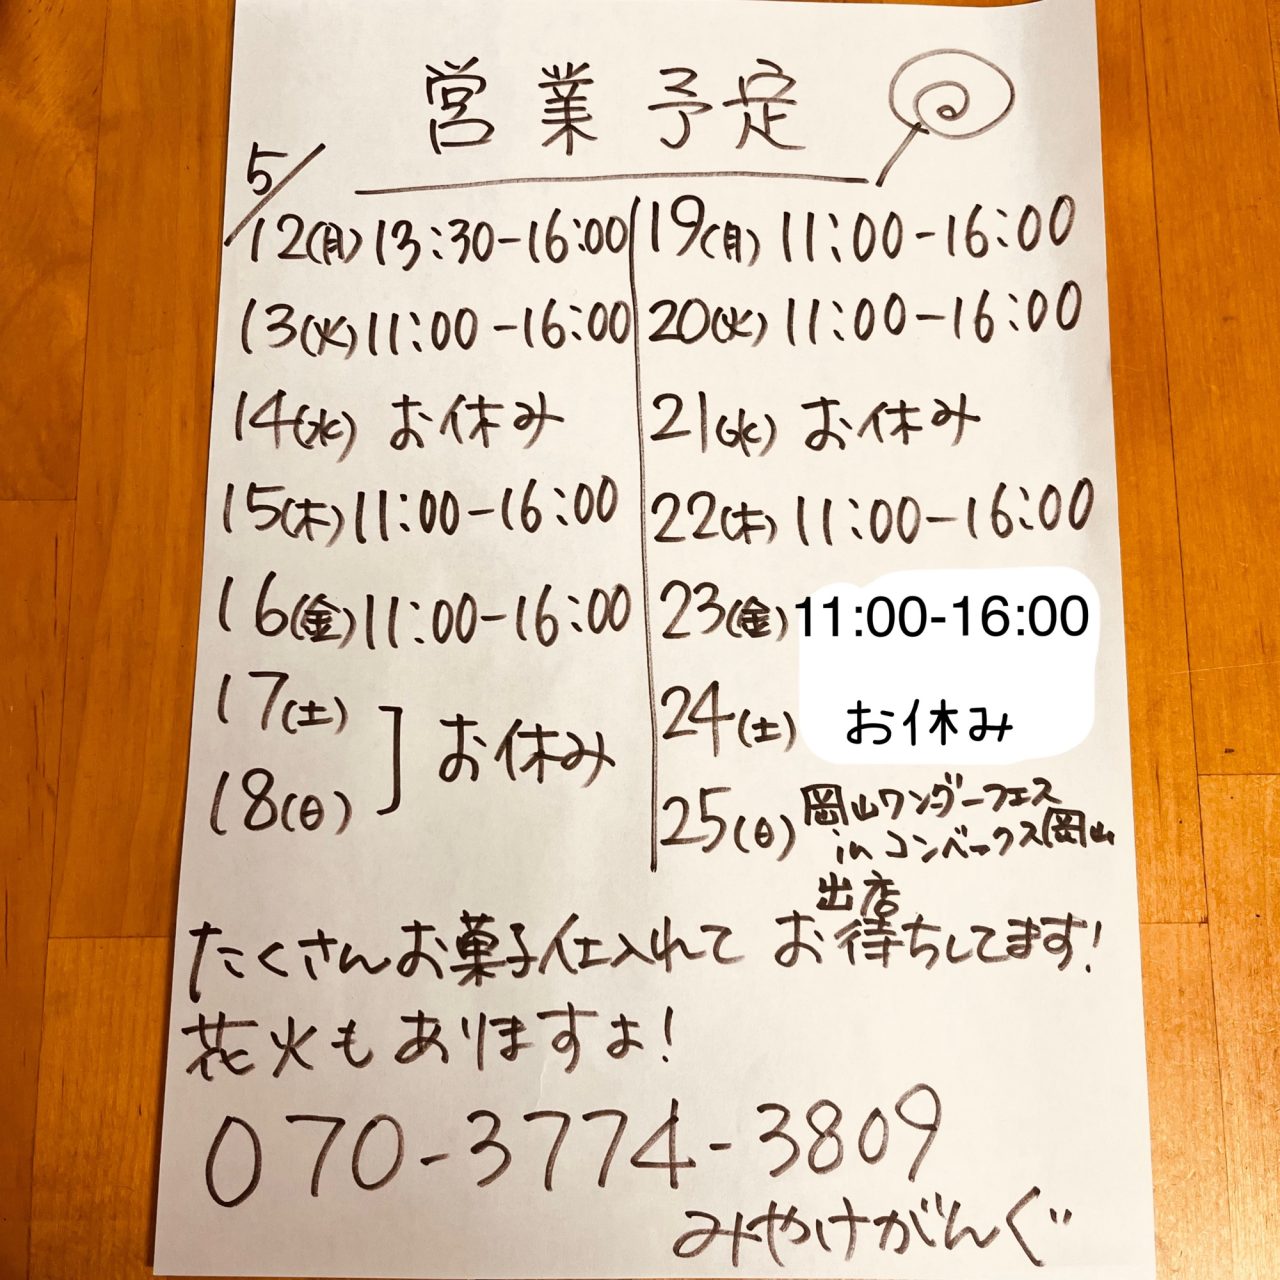 営業予定
5/
12(月) 13:30-16:00
13(火) 11:00-16:00
14(水) お休み
15(木) 11:00-16:00
16(金) 11:00-16:00
17(土)
18(日)
] お休み
19(月) 11:00-16:00
20(火) 11:00-16:00
21(水) お休み
22(木) 11:00-16:00
23(金) 11:00-16:00
24(土) お休み
25(日) 岡山ワンダーフェス
in コンベックス岡山
出店
たくさんお菓子仕入れて お待ちしてます!
花火もありますよ!
070-3774-3809
みやけがんぐ